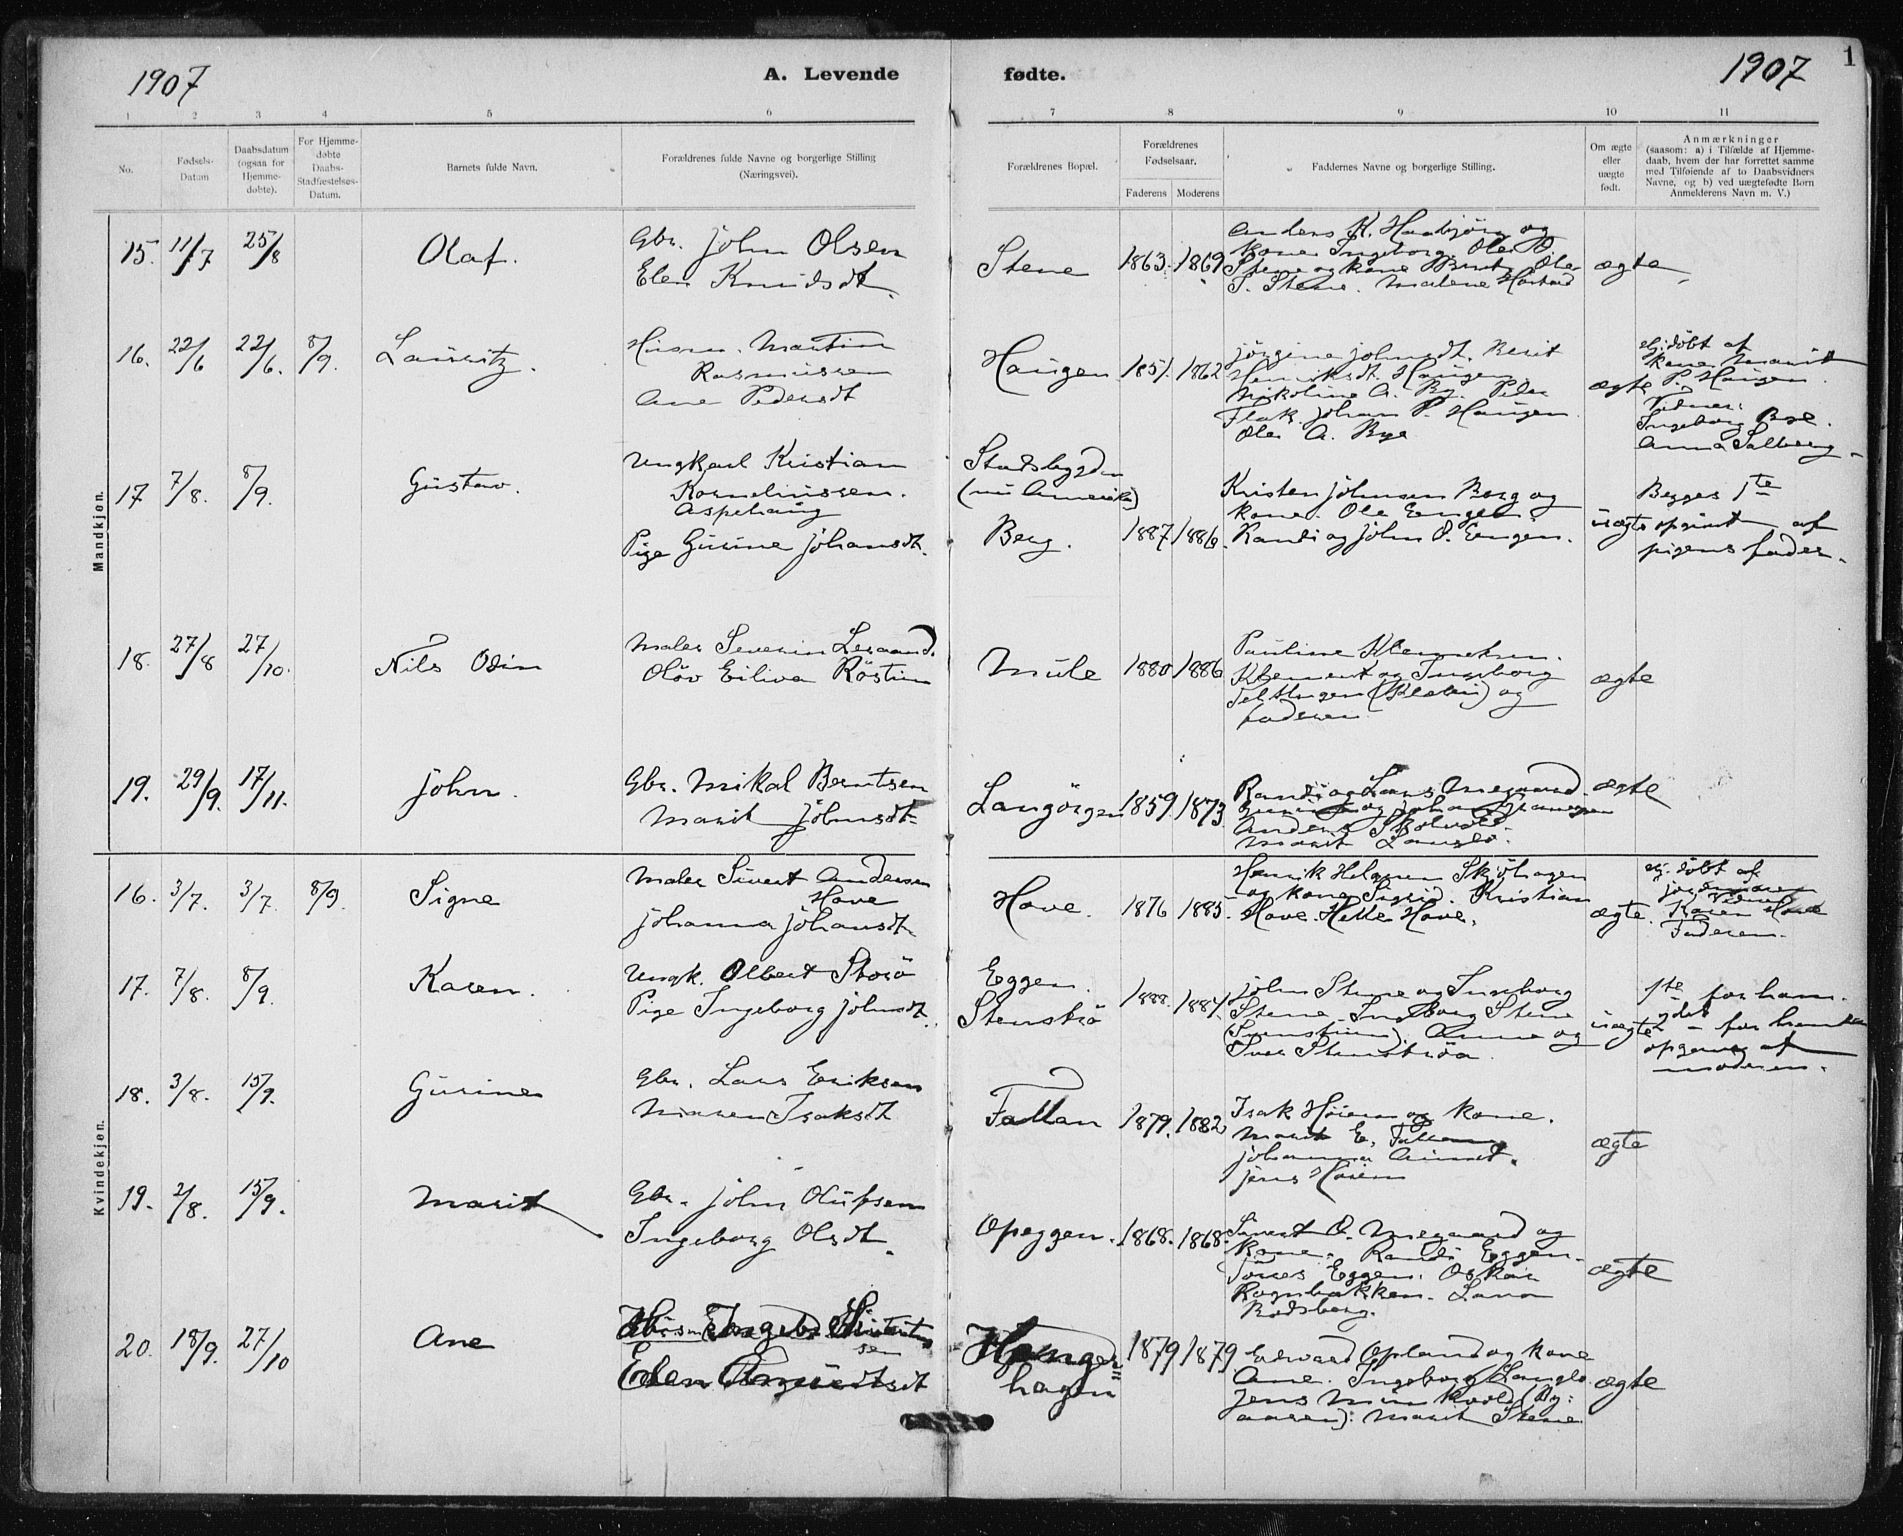 1907
A. Levende
fødte.
1907
1
1 2 3 4 5 6 7 8 9 10 11
No.
Fødsels-
Datum
Daabsdatum
(ogsaa for
Hjemme-
døbte).
For Hjemme-
døbte
Daabs-
Stadfæstelses-
Datum.
Barnets fulde Navn.
Forældrenes fulde Navne og borgerlige Stilling
(Næringsvei).
Forældrenes Bopæl.
Forældrenes
Fødselsaar.
Faderens Moderens
Faddernes Navne og borgerlige Stilling.
Om ægte
eller
uægte
født.
Anmærkninger
(saasom: a) i Tilfælde af Hjemme-
daab, hvem der har forrettet samme
med Tilføiende af to Daabsvidners
Navne, og b) ved uægtefødte Børn
Anmelderens Navn m. V.)
Mandkjøn.
15. 11/7 25/8
Olaf.
Gbr. John Olsen
Elen Knudsdt.
Stene 1863. 1869
Anders K. og
kone Ingeborg. Ole O.
Stene og kone Berit. Ole
J. Stene. Malene
ægte
16. 22/6 22/6. 8/9.
Lauritz.
Husm. Martin
Rasmussen
Ane Pedersdt
Haugen 1851. 1862
Jørgine Johnsdt. Berit
Henriksdt. Haugen
Nikoline A. By. Peder
Flak. Johan P. Haugen
Ole A. Bye
ægte
Hj. døbt af
kone Marit
P. Haugen.
Vidner:
Ingeborg Bye.
Anna Solberg.
17 7/8. 8/9.
Gustav.
Ungkarl Kristian
Korneliussen.
Aspehaug
Pige Gurine Johansdt.
Stadsbygden
(nu Amerika)
Berg. 1887 1886.
Kristen Johnsen Berg og
kone. Ole Engen.
Randi og John O. Engen.
uægte
Begges 1te
opgivet af
pigens fader.
18. 27/8 27/10.
Nils Odin
Maler Severin
Oløv Eiliva Røstin
Mule 1880 1886
Pauline
Klement og Ingeborg
og
faderen
ægte
19. 29/9. 17/11.
John.
Gbr. Mikal Berntsen
Marit Johnsdt.
Langørgen 1859. 1873.
Randi og Lars Megaard.
og Johan
Anders
Marit Langlo.
ægte
Kvindekjøn.
16. 3/7. 3/7. 8/9.
Signe
Maler Sivert Andersen
Hove
Johanna Johansdt.
Hove. 1876 1885.
Henrik
og kone Sigrid. Kristian
Hove. Hove.
ægte.
Hj. døbt af
jordmoren
Vidner
Karen Hove
Faderen.
17. 7/8. 8/9.
Karen.
Ungk. Olbert Storø
Pige Ingeborg Johnsdt.
Eggen.
Stenstrø
1888. 1884.
John Stene og Ingeborg
Stene. Ingeborg Stene
Anne og
Iver Stenstrøa
uægte
1te for ham.
– for hende
opgivet af
moderen.
18. 3/8. 15/9.
Gurine
Gbr. Lars Eriksen
Maren Isaksdt
Fallan 1879. 1882
Isak Høiem og kone.
Marit E. Fallan
Johanna
Jens Høiem
ægte
19. 2/8. 15/9.
Marit
Gbr. John Olufsen
Ingeborg Olsdt.
Opeggen. 1868. 1868.
Sivert O. Megaard og
kone. Randi Eggen.
Eggen. Oskar
Rognbakken. Lava
Rødsberg.
ægte
20. 18/9. 27/10
Ane
Husm.
sen
Elen
hagen
1879 1879
Edvard Opland og kone
Ane. Ingeborg Langlo
Jens
Marit Stene
ægte